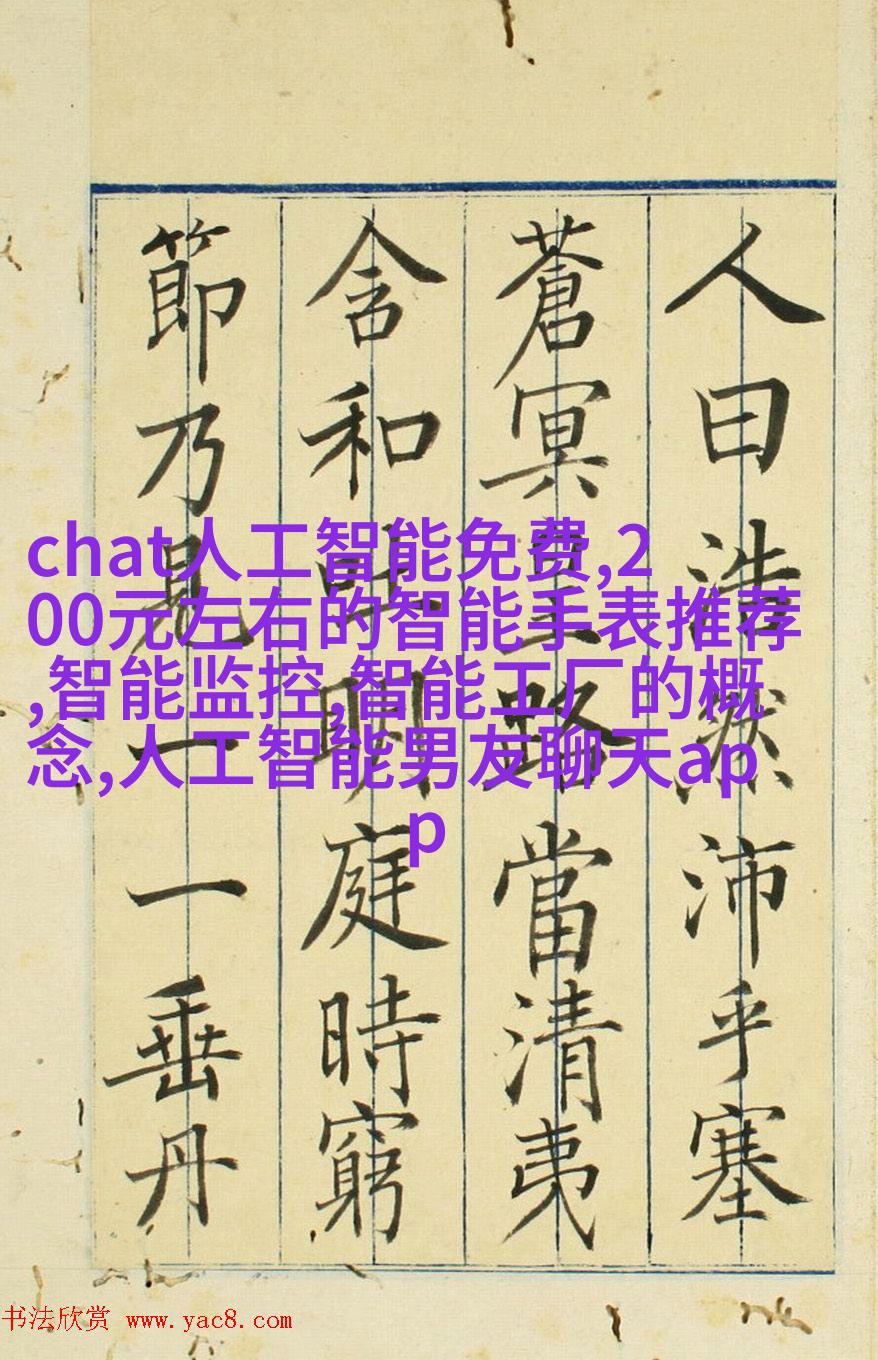 人曰浩然沛乎塞
蒼冥皇路當清夷
含和吐明庭時窮
節乃見一一垂丹
chat人工智能免费,2
00元左右的智能手表推荐
,智能监控,智能工厂的概
念,人工智能男友聊天ap
p
书法欣赏 www.yac8.com